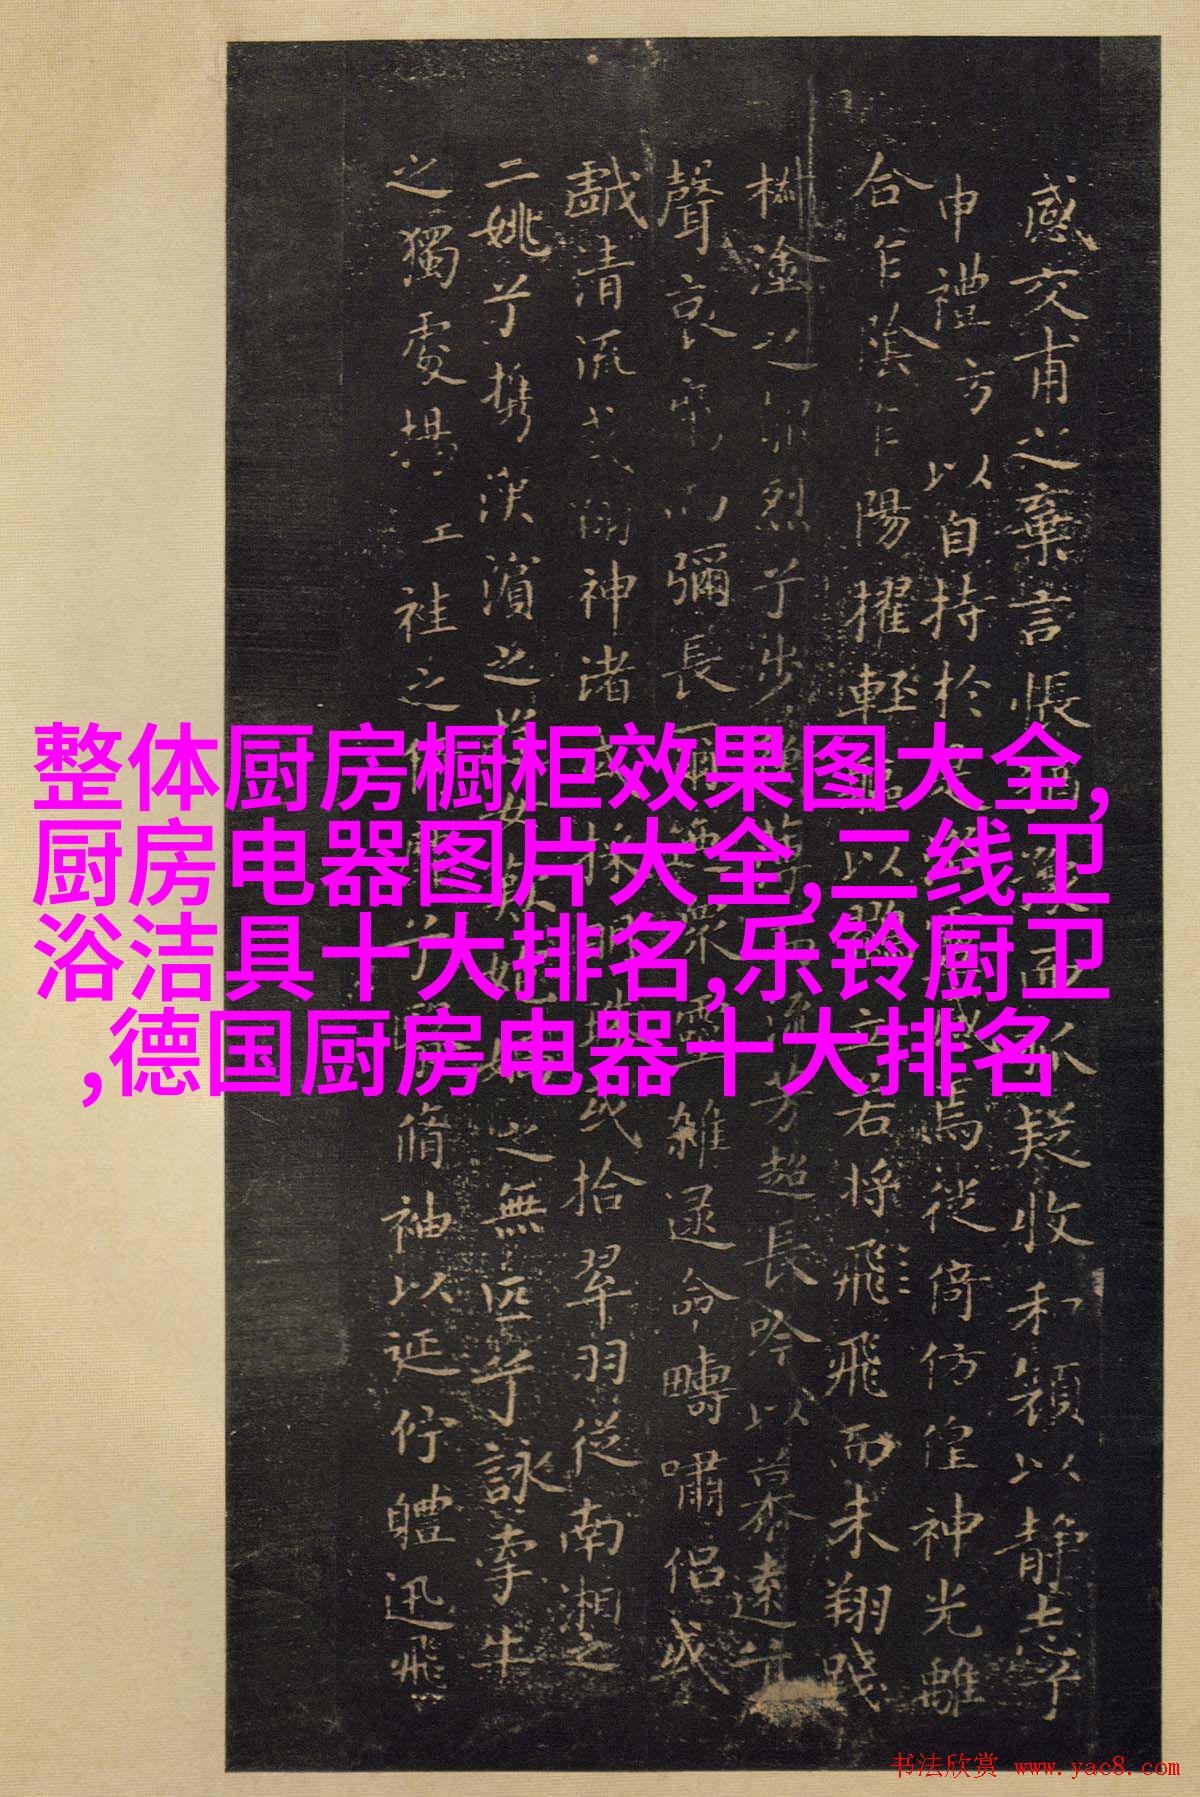 感交甫之棄言悵而疑收和顏以静志兮
申禮方以自持於焉從倚仿偟神光離
合乍陰乍陽擢輕以立若将飛飛而未翔踐
塗之烈兮步流芳超長吟以慕遠兮
聲哀而彌長爾眾靈雜遝命疇嘯侶或
戲清流或神渚或採明珠或拾翠羽從南湘之
二姚兮攜漢濱之之無匹兮詠牽牛
之獨處揚工袿之兮脩袖以延佇軆迅飛
整体厨房橱柜效果图大全,
厨房电器图片大全,二线卫
浴洁具十大排名,乐铃厨卫
,德国厨房电器十大排名
书法欣赏 www.yac8.com